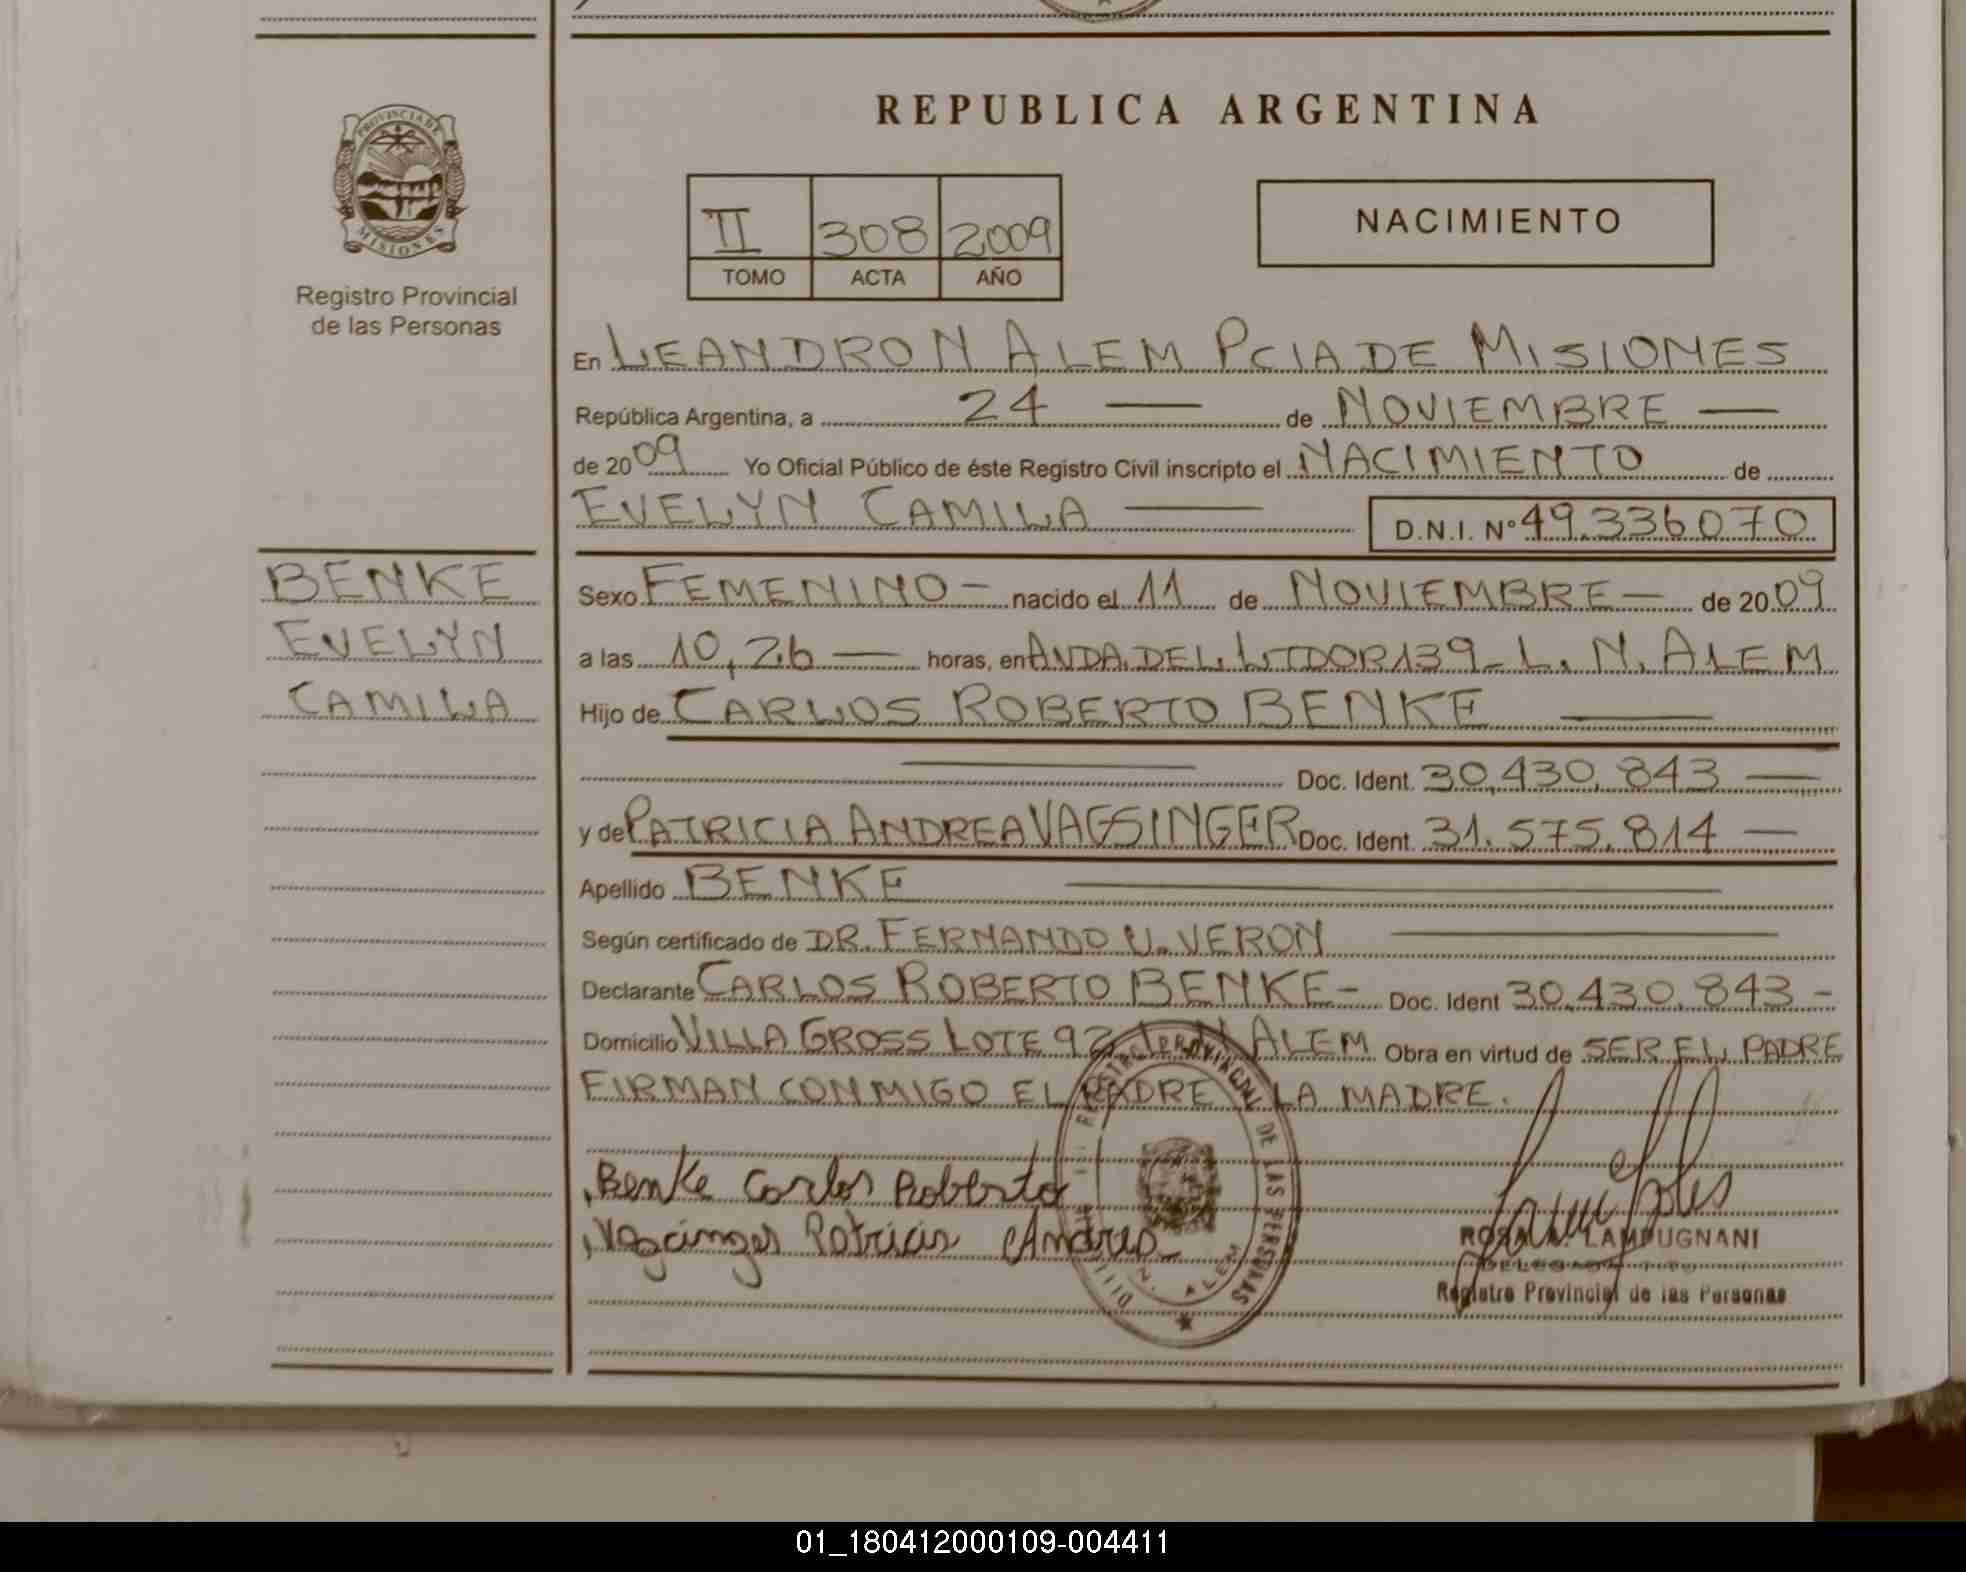 REPUBLICA ARGENTINA
PROVINCIA DE
MISIONES
Registro Provincial
de las Personas
II 308 2009
TOMO ACTA AÑO
NACIMIENTO
En LEANDRO N ALEM PCIA DE MISIONES
República Argentina, a 24 — de NOVIEMBRE —
de 2009 Yo Oficial Público de éste Registro Civil inscripto el NACIMIENTO de
EVELYN CAMILA —
D.N.I. Nº 49.336070
BENKE
EVELYN
CAMILA
Sexo FEMENINO - nacido el 11 de NOVIEMBRE — de 2009
a las 10,26 — horas, en AVDA. DEL LTDOR 139 - L. N. ALEM
Hijo de CARLOS ROBERTO BENKE —
— Doc. Ident. 30.430.843 —
y de PATRICIA ANDREA VAGSINGER Doc. Ident. 31.575.814 —
Apellido BENKE —
Según certificado de DR. FERNANDO U. VERON —
Declarante CARLOS ROBERTO BENKE - Doc. Ident 30.430.843 -
Domicilio VILLA GROSS LOTE 92 L N ALEM Obra en virtud de SER EL PADRE
FIRMAN CONMIGO EL PADRE LA MADRE.
Benke Carlos Roberto
Patricia Andrea
REGISTRO PROVINCIAL DE LAS PERSONAS
N. ALEM
ROSA A. LAMPUGNANI
Registro Provincial de las Personas
01_180412000109-004411